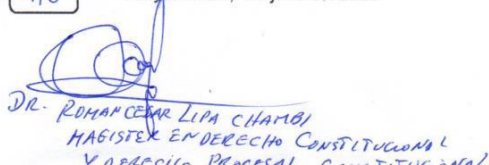 DR. ROMAN CESAR LIPA CHAMBI
MAGISTER EN DERECHO CONSTITUCIONAL
Y DERECHO PROCESAL CONSTITUCIONAL